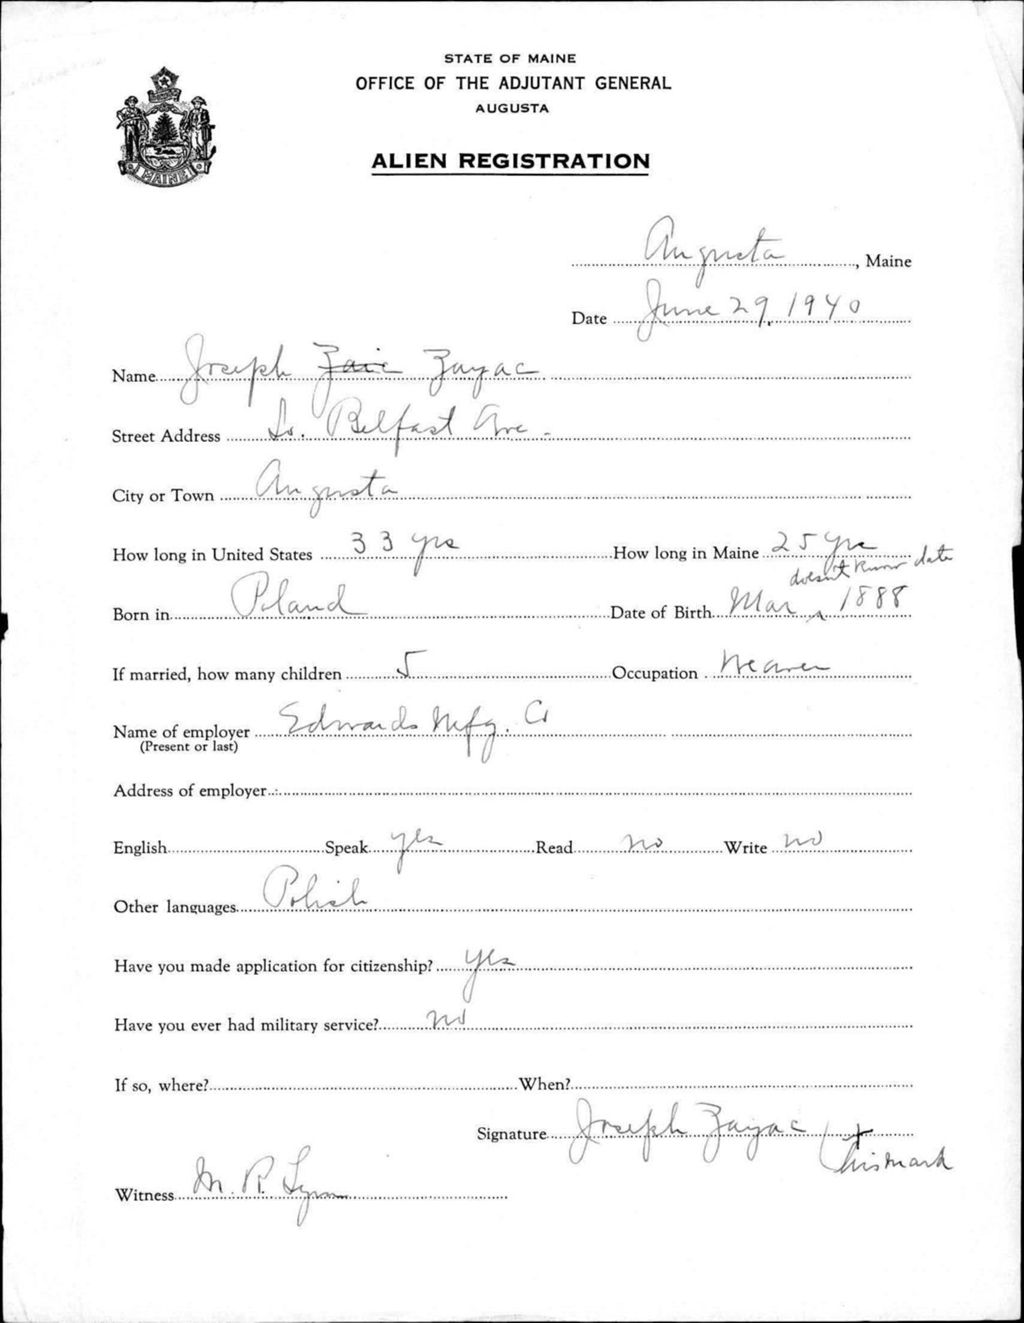 STATE OF MAINE
OFFICE OF THE ADJUTANT GENERAL
AUGUSTA
ALIEN REGISTRATION
MAINE
Augusta, Maine
Date June 29, 1940
Name Joseph Zaic Zayac
Street Address So. Belfast Ave.
City or Town Augusta
How long in United States 33 yrs How long in Maine 25 yrs
doesn't know date
Born in Poland Date of Birth Mar ^ 1888
If married, how many children 5 Occupation Weaver
Name of employer Edwards Mfg. Co
(Present or last)
Address of employer
English Speak yes Read no Write no
Other languages Polish
Have you made application for citizenship? yes
Have you ever had military service? no
If so, where? When?
Signature Joseph Zayac (+
his mark
Witness M. R. Lynn